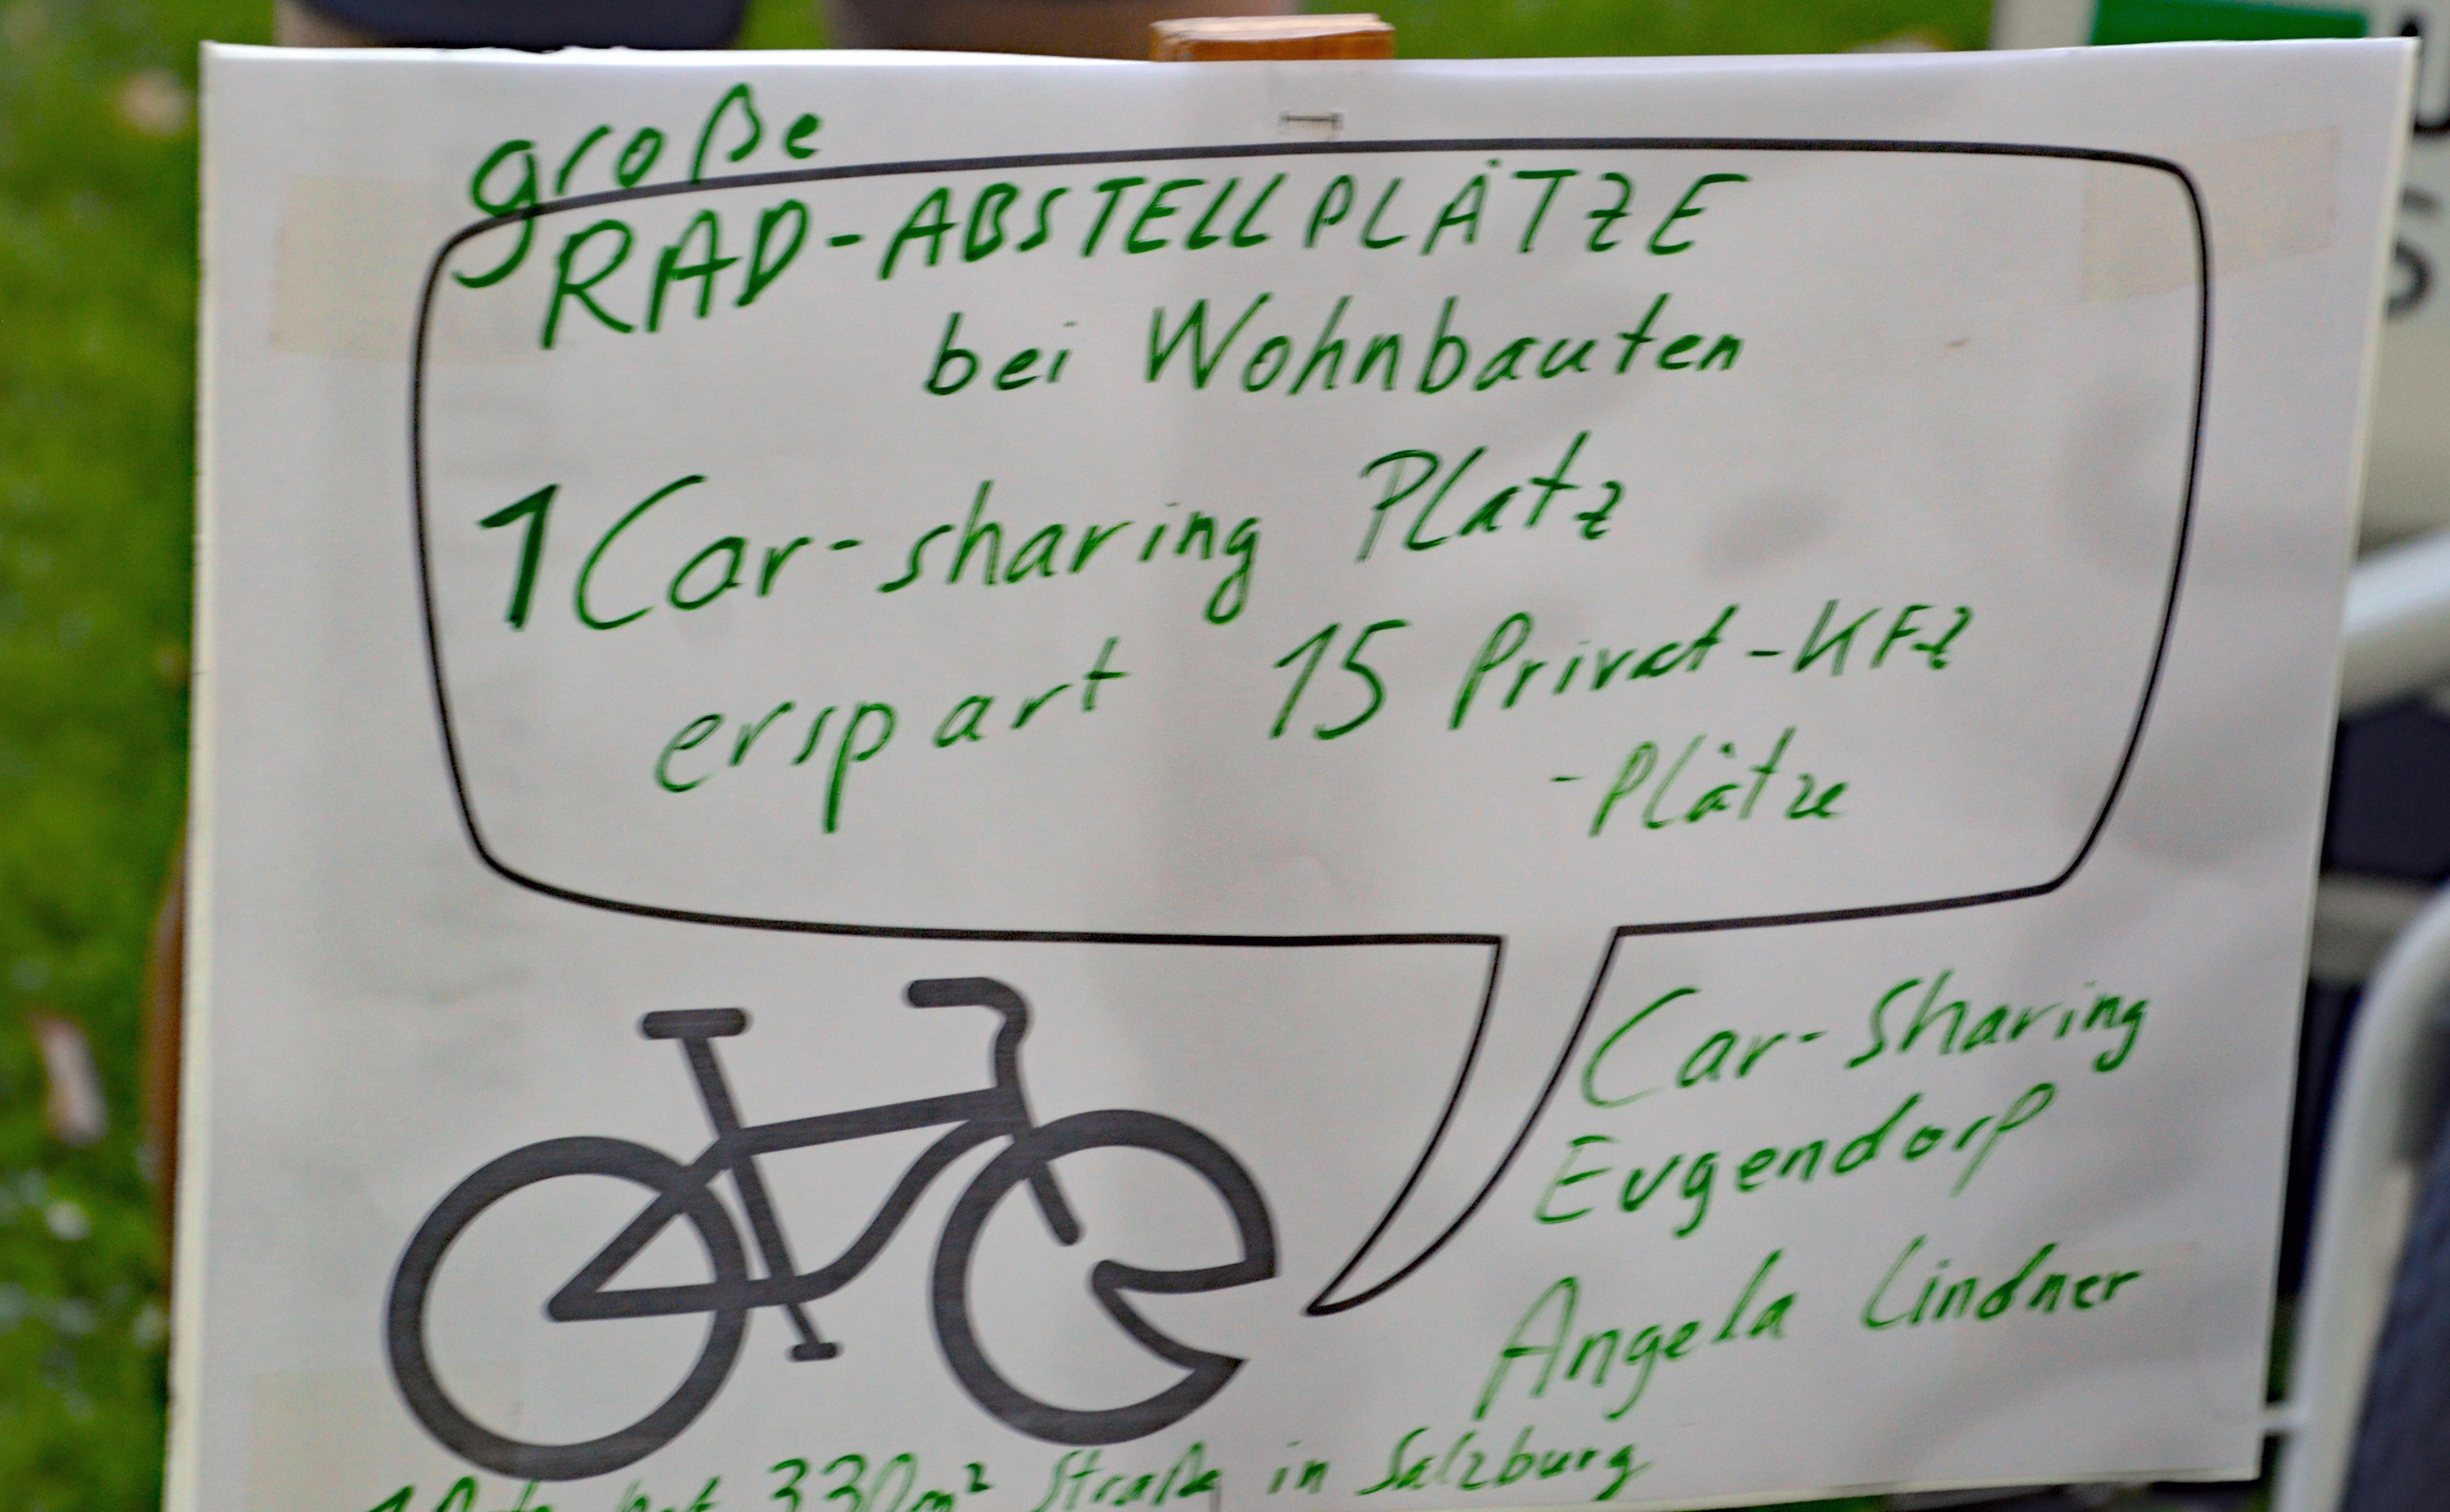 große
RAD-ABSTELLPLÄTZE
bei Wohnbauten
1 Car-sharing Platz
erspart 15 Privat-KFZ
-Plätze
Car-Sharing
Eugendorf
Angela Lindner
330m² Straße in Salzburg